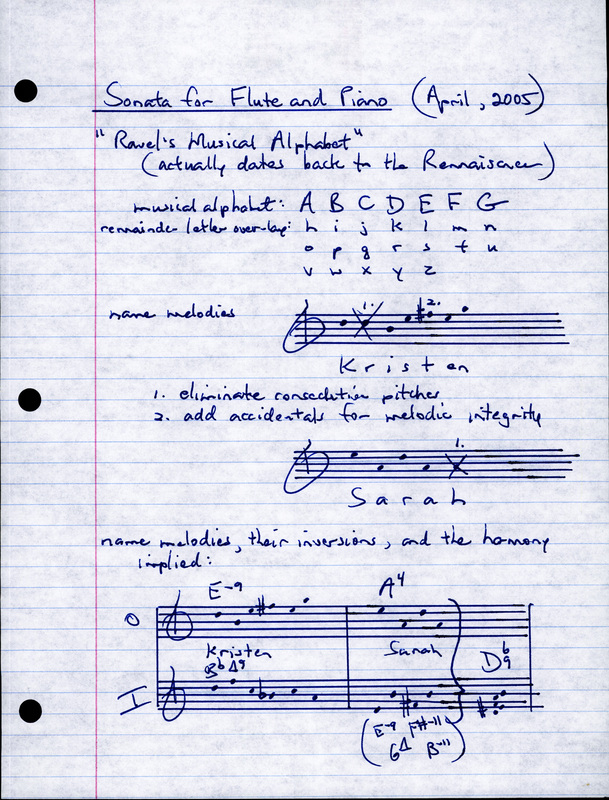 Sonata for Flute and Piano (April, 2005)
"Ravel's Musical Alphabet"
(actually dates back to the Rennaissance)
musical alphabet: A B C D E F G
remainder letter over-lay: h i j k l m n
o p q r s t u
v w x y z
name melodies
1. 2.
K r i s t e n
1. eliminate consecutive pitches
2. add accidentals for melodic integrity
1.
S a r a h
name melodies, their inversions, and the harmony
implied:
E-9 A4
O
Kristen Sarah
Bb Δ9 D6/9
I
(E-9 F#-11
GΔ B-11)